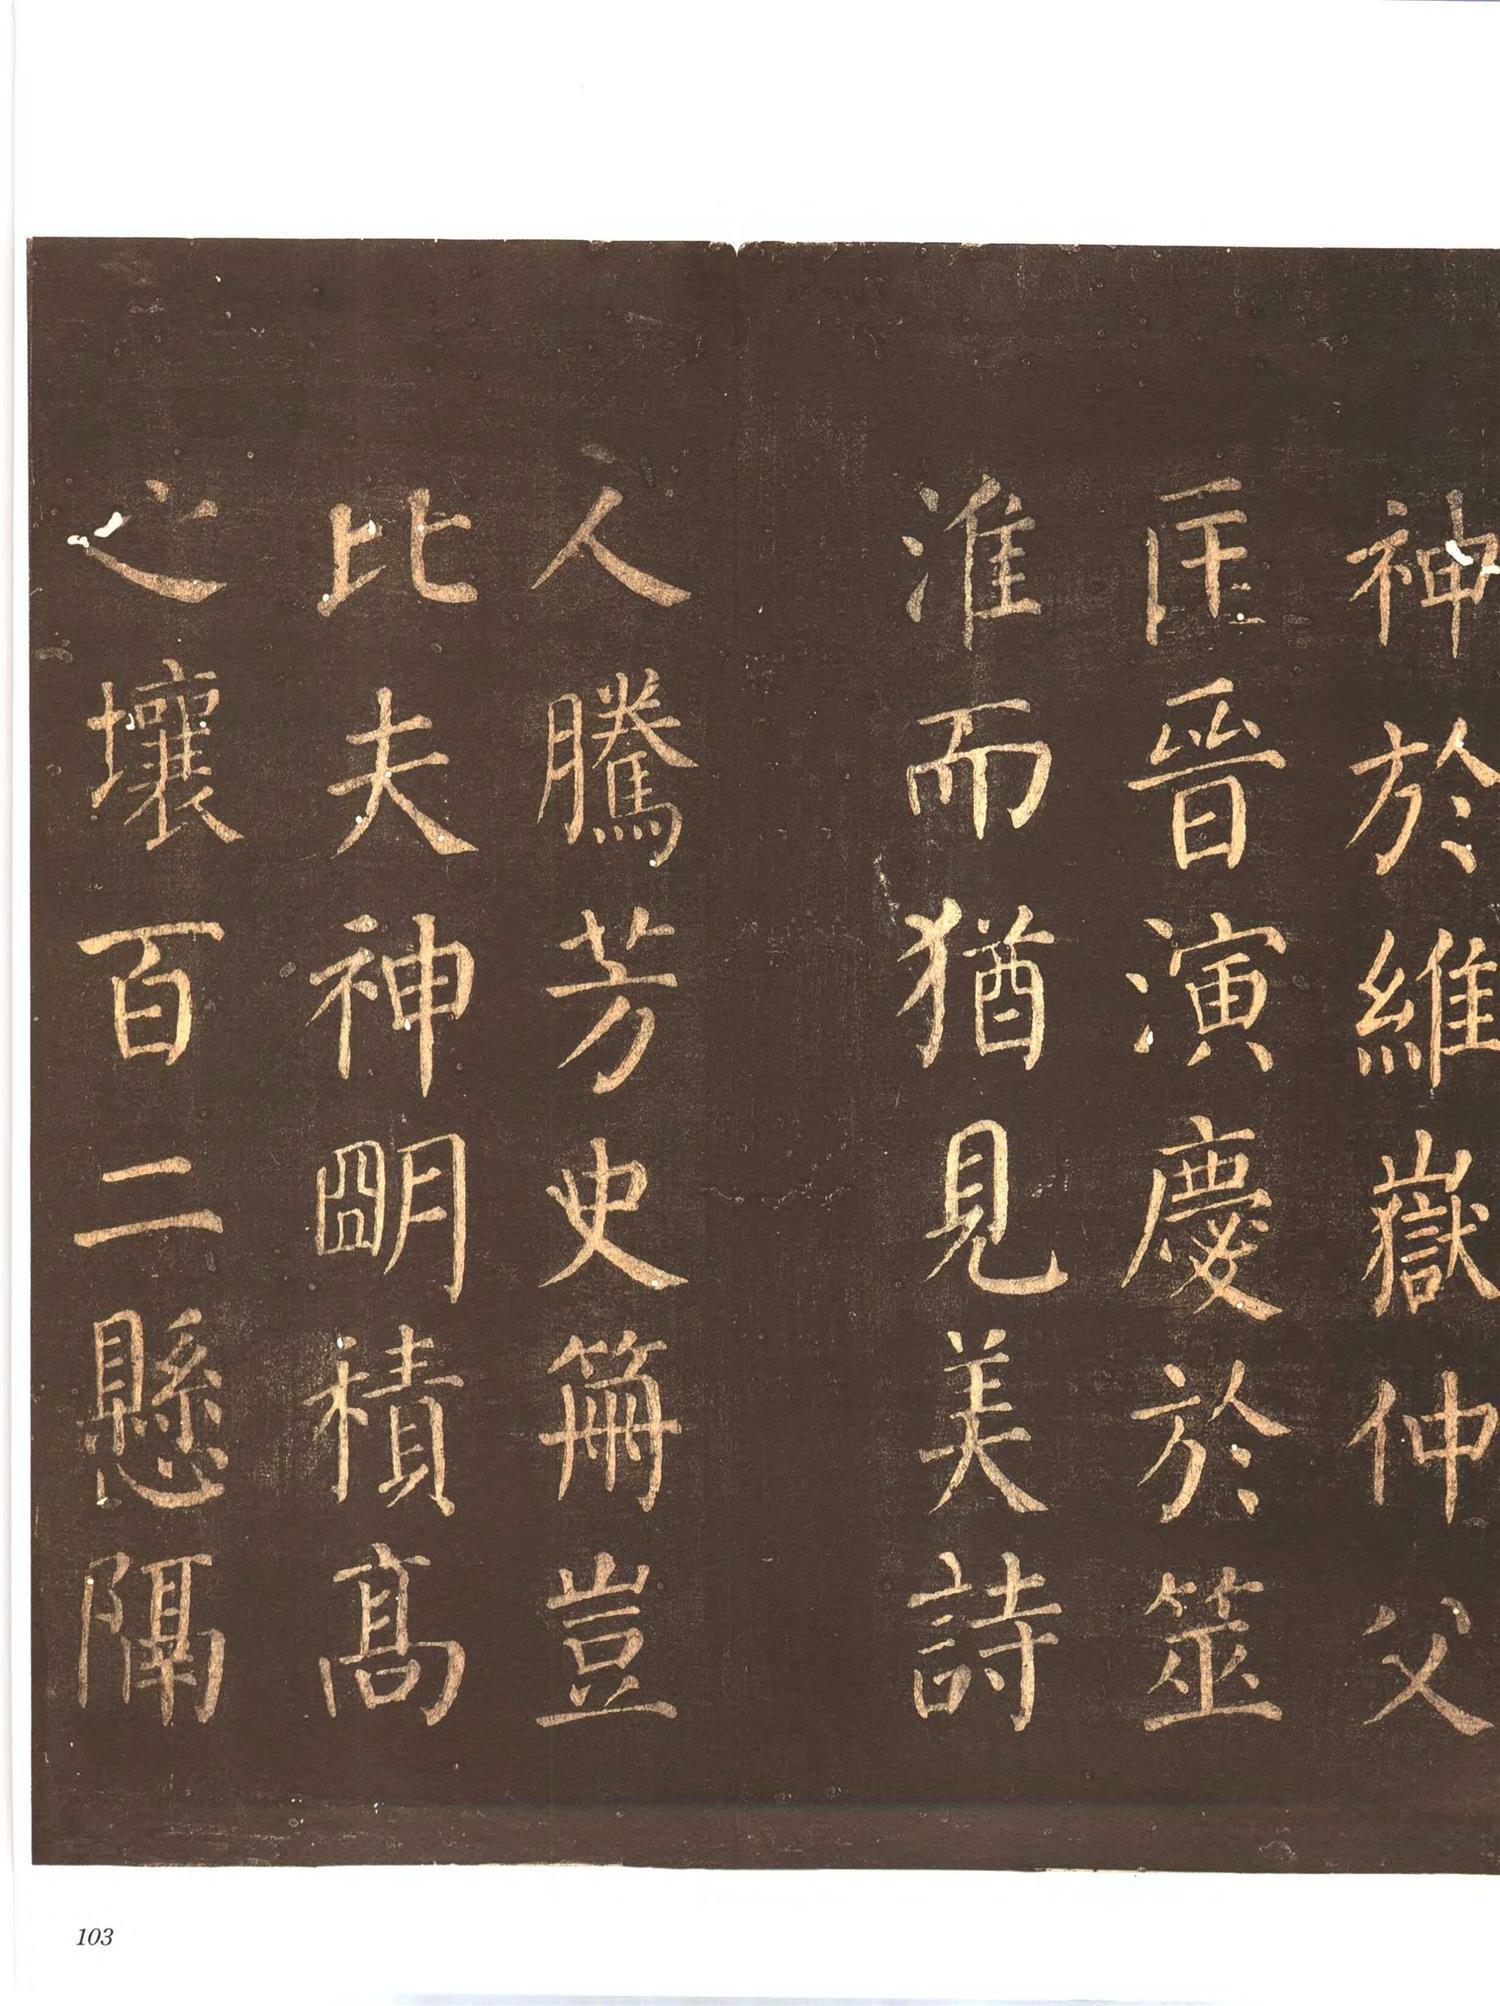 神於維嶽仲父
匡晉演慶於筮
淮而猶見美詩
人騰芳史筞豈
比夫神明積高
之壤百二懸隔
103